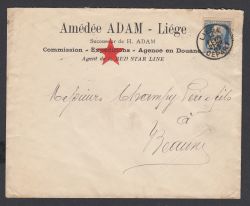 Amédée ADAM - Liége
Successeur de H. ADAM
Commission - Expéditions - Agence en Douane
Agent de la RED STAR LINE
Messieurs Champy Père & fils
à
Beaune
DEPART